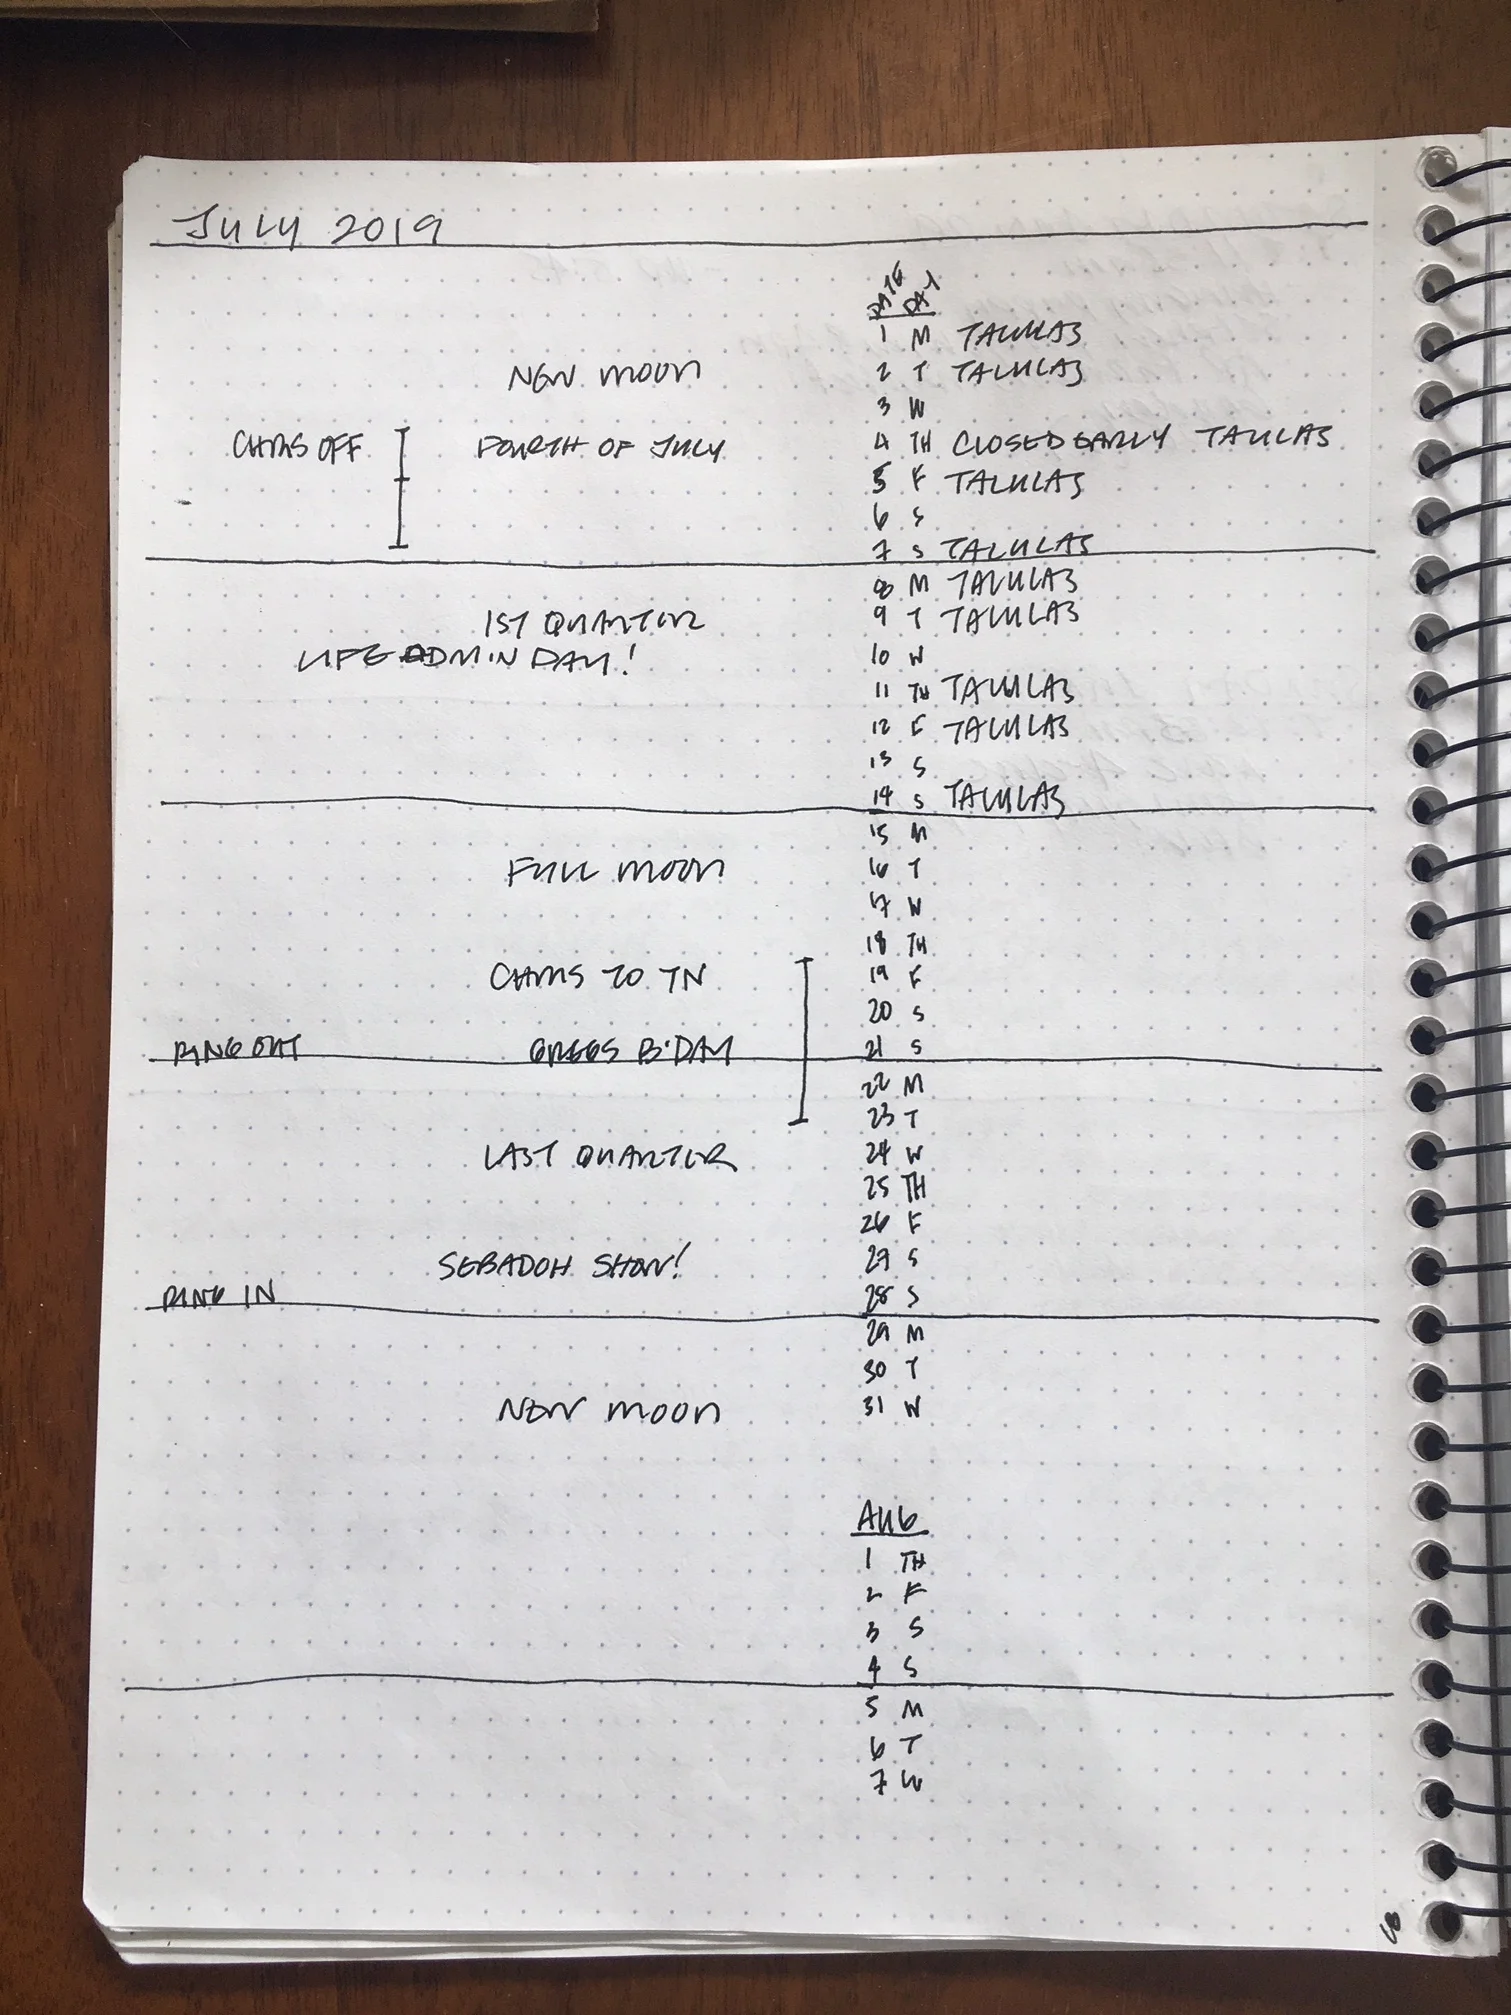 JULY 2019
DATE DAY
1 M TALULAS
NEW MOON 2 T TALULAS
3 W
CHRIS OFF FOURTH OF JULY 4 TH CLOSED EARLY TALULAS
5 F TALULAS
6 S
7 S TALULAS
8 M TALULAS
1ST QUARTER 9 T TALULAS
LIFE ADMIN DAY! 10 W
11 TH TALULAS
12 F TALULAS
13 S
14 S TALULAS
15 M
FULL MOON 16 T
17 W
18 TH
CHRIS TO TN 19 F
20 S
RING OUT GREGS B'DAY 21 S
22 M
23 T
LAST QUARTER 24 W
25 TH
26 F
SEBADOH SHOW! 27 S
RING IN 28 S
29 M
30 T
NEW MOON 31 W
AUG
1 TH
2 F
3 S
4 S
5 M
6 T
7 W